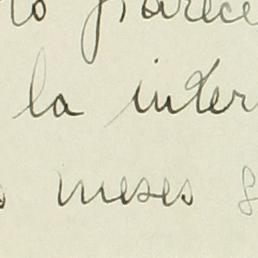 lo parece
la inter
meses